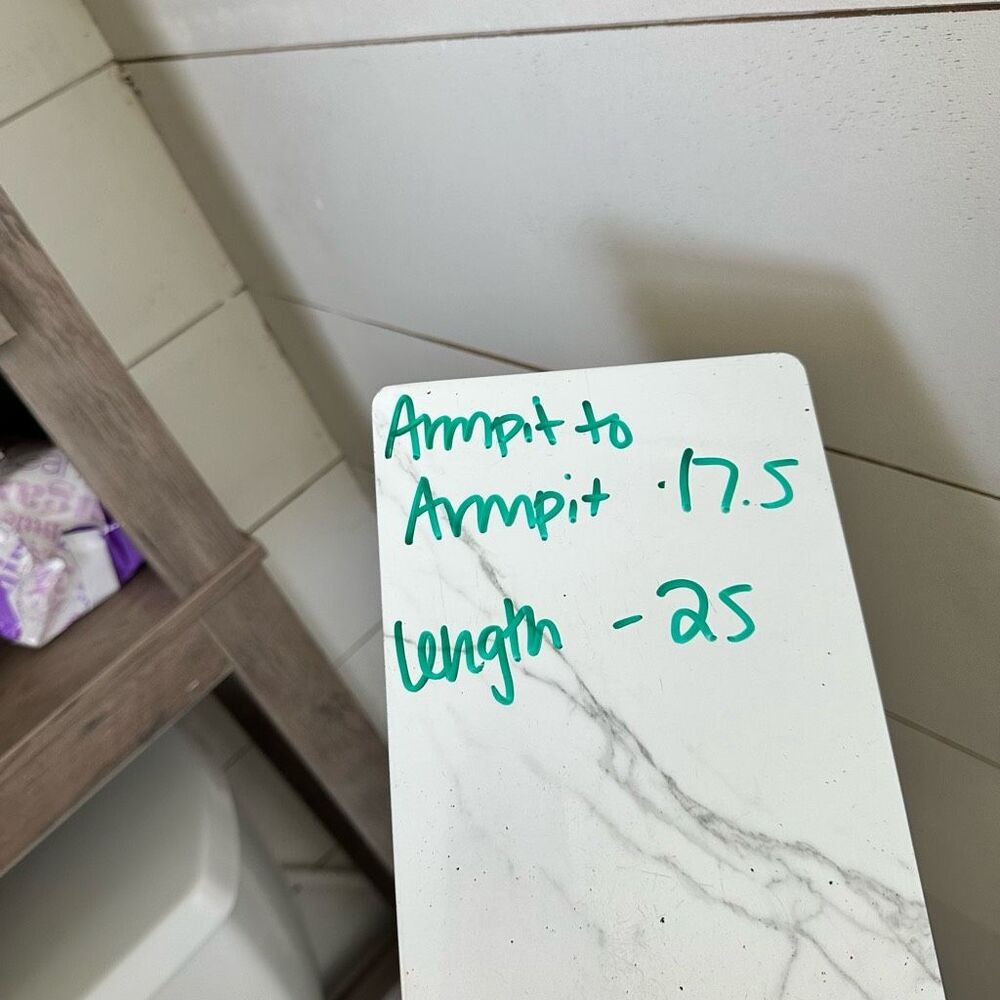 Armpit to
Armpit · 17.5
Length - 25